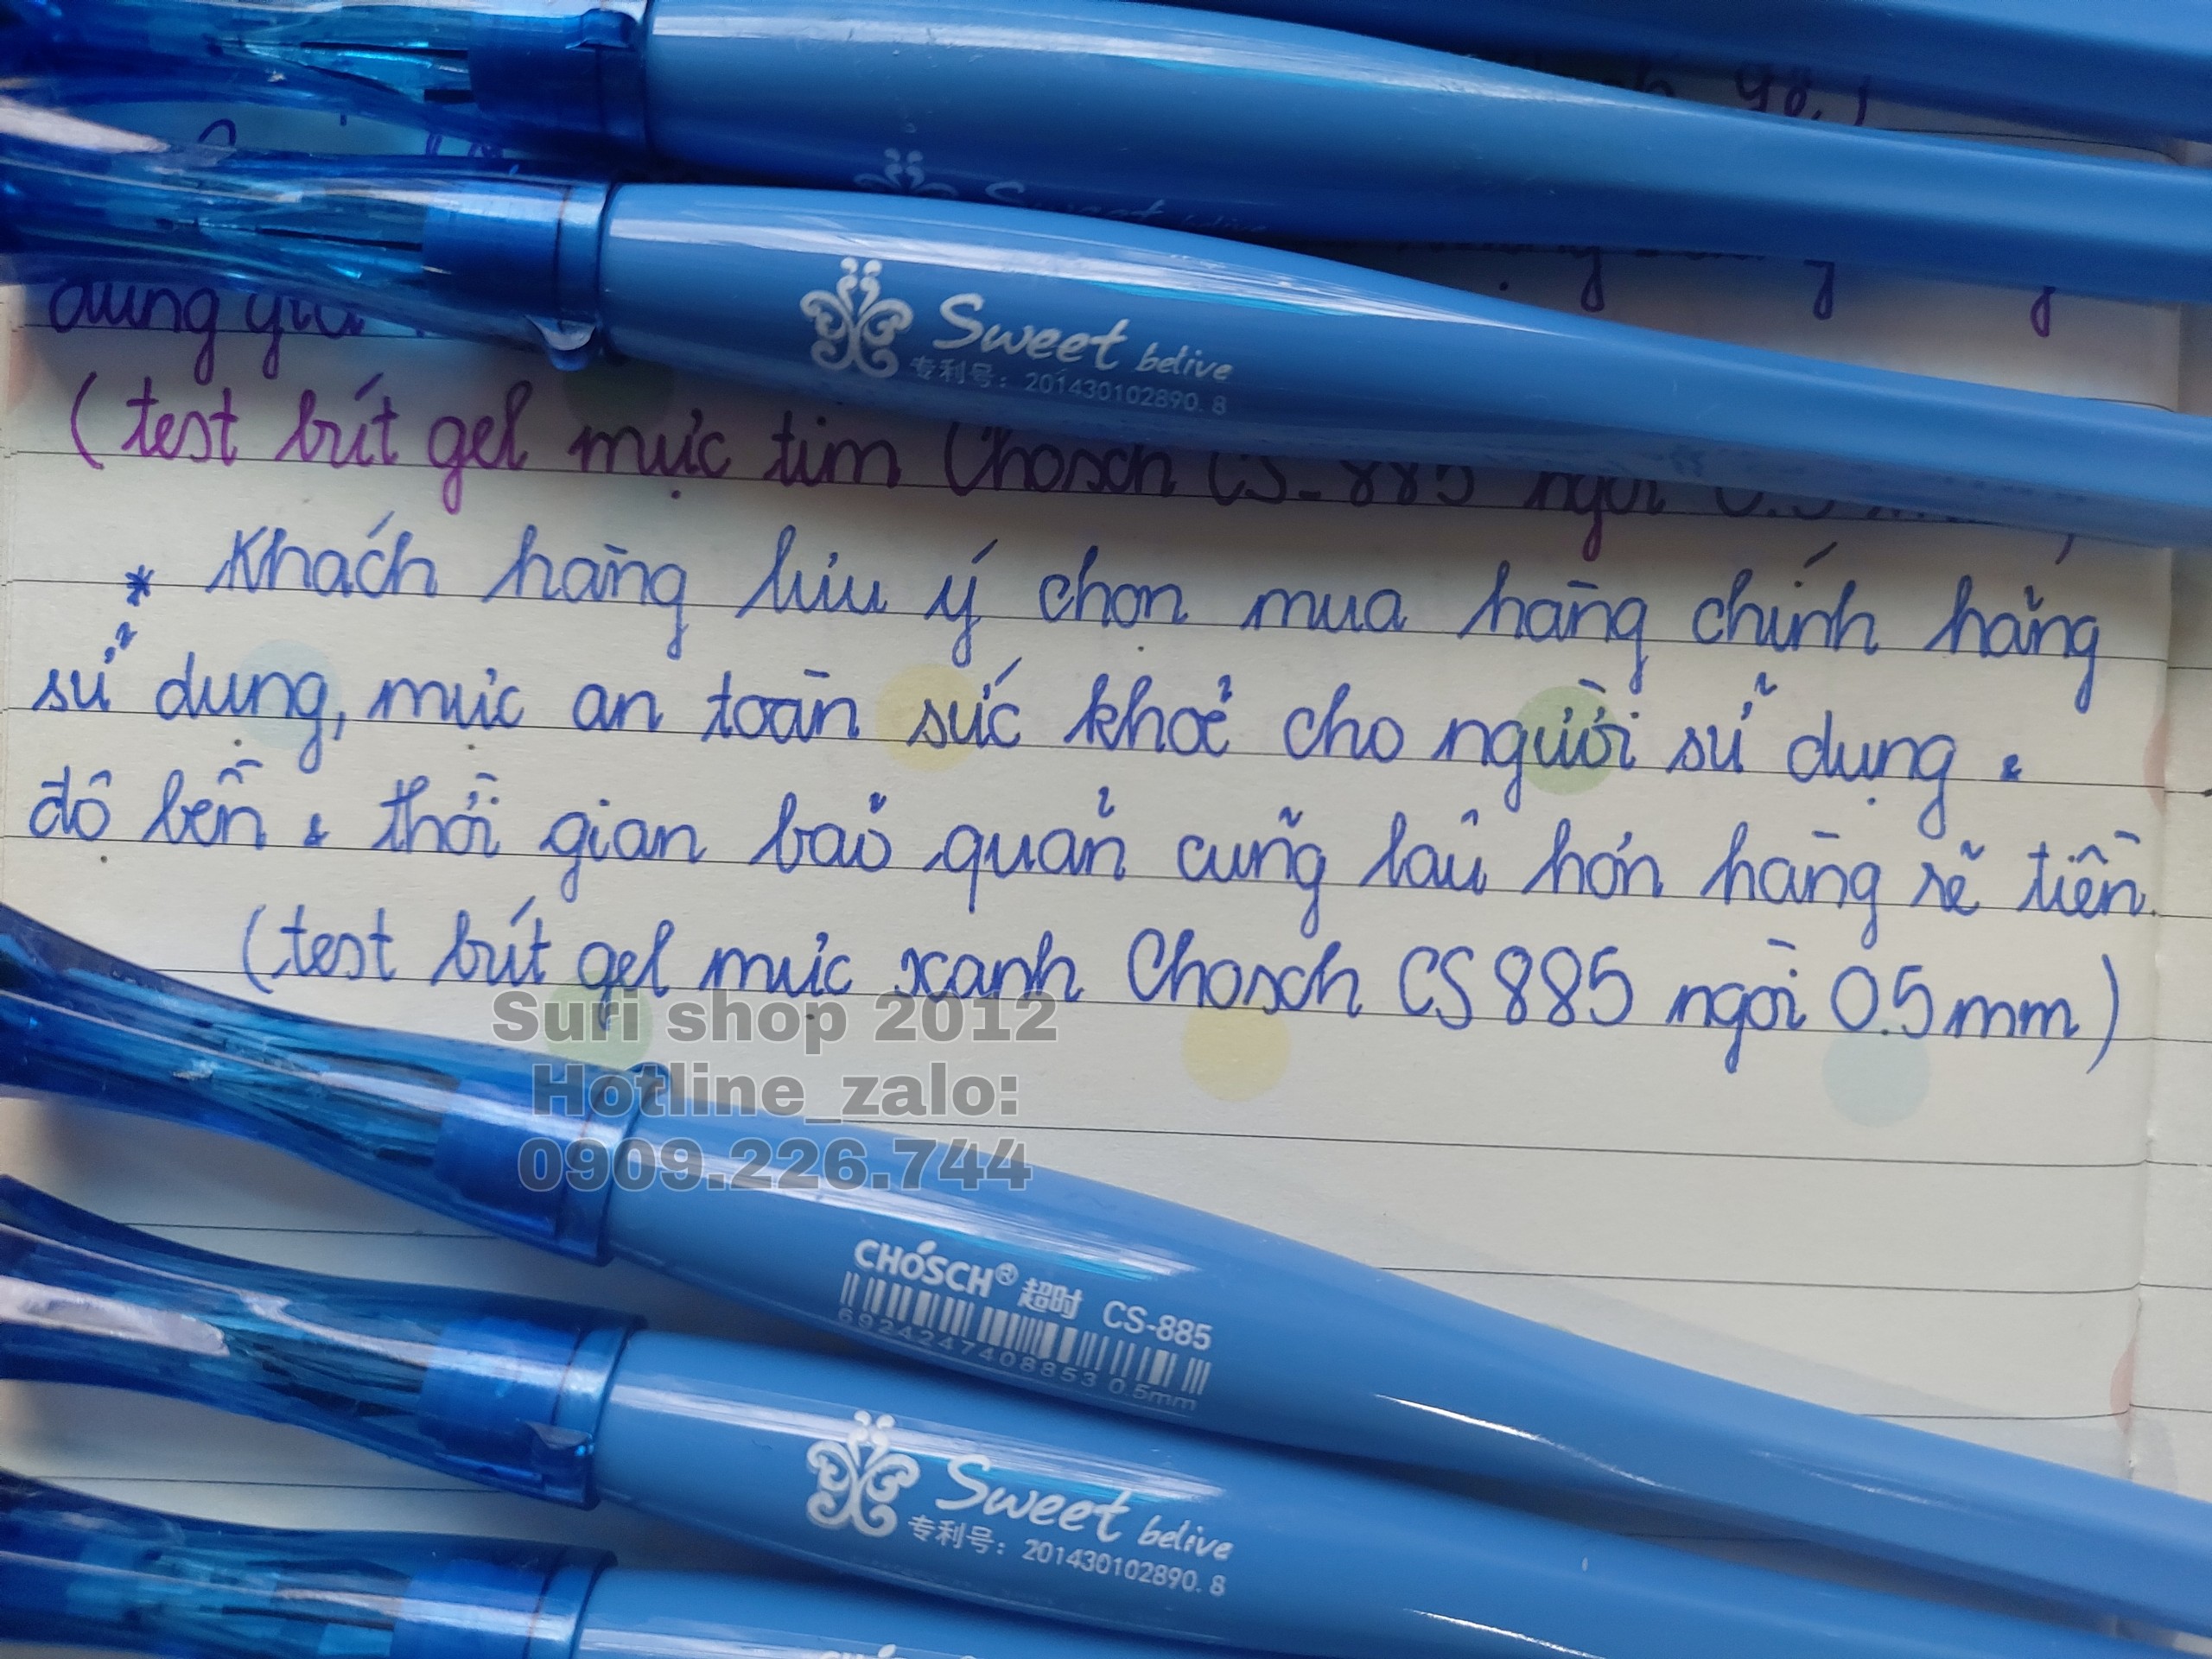 Sweet belive
Sweet belive
专利号: 201430102890.8
(test bút gel mực tím Chosch CS-885 ngòi
* Khách hàng lưu ý chọn mua hàng chính hãng
sử dụng, mực an toàn sức khoẻ cho người sử dụng &
độ bền & thời gian bảo quản cũng lâu hơn hàng rẽ tiền.
(test bút gel mực xanh Chosch CS 885 ngòi 0.5mm)
Suri shop 2012
Hotline_zalo:
0909.226.744
CHOSCH® 超时 CS-885
6924247408853 0.5mm
Sweet belive
专利号: 201430102890.8